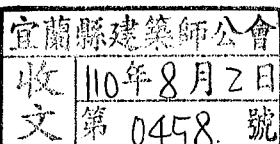 宜蘭縣建築師公會
收文
110年8月2日
第 0458. 號